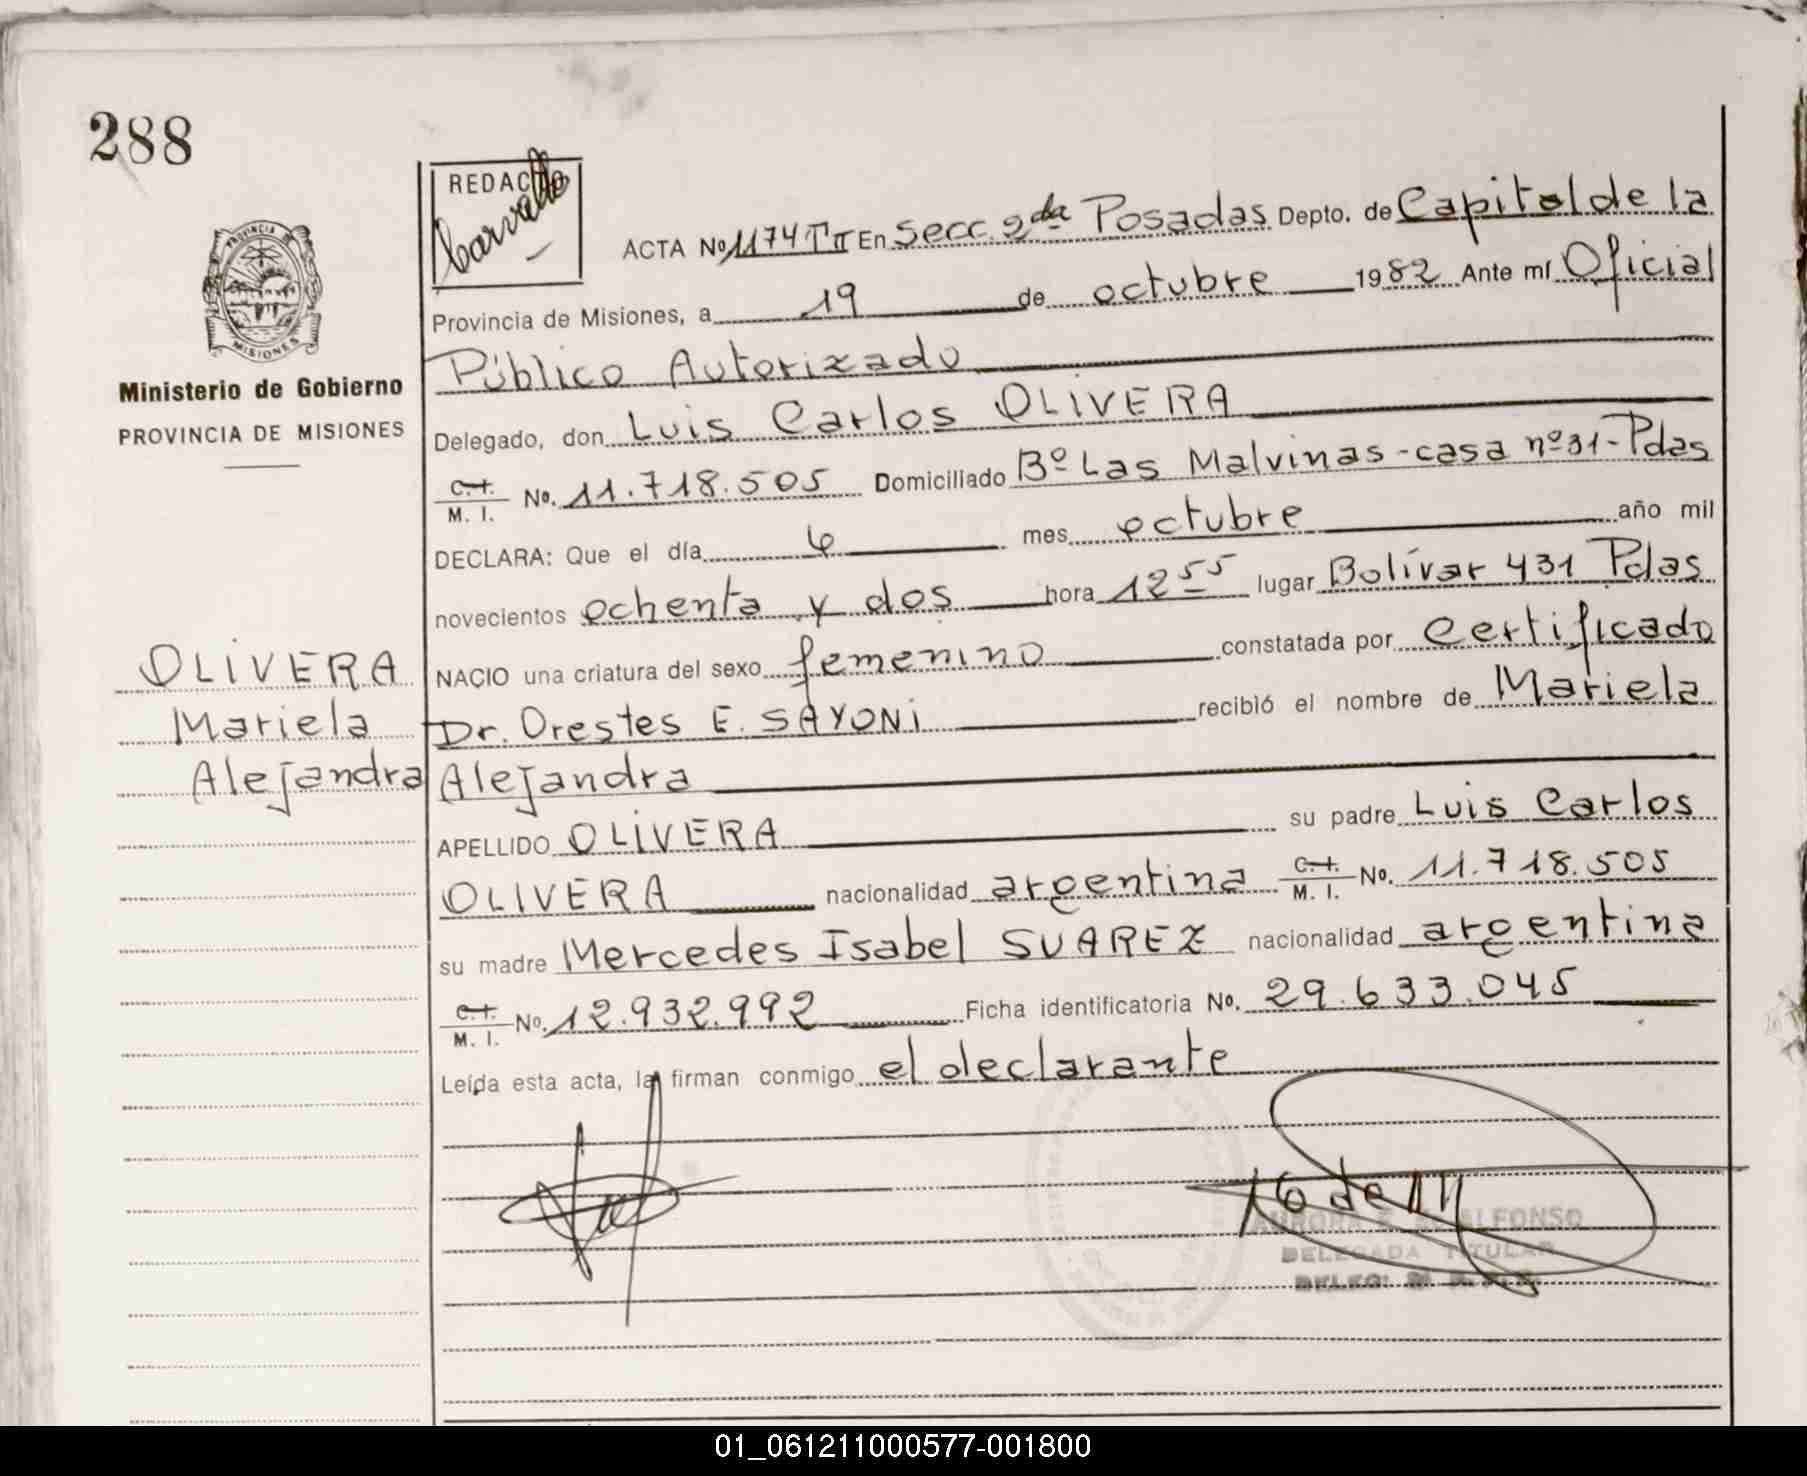 288
REDACTO
Carvallo
ACTA Nº 1174 TºII En Secc. 2da Posadas Depto. de Capital de la
Provincia de Misiones, a 19 de octubre 1982 Ante mí Oficial
Público Autorizado
Delegado, don Luis Carlos OLIVERA
C.I. M. I. No. 11.718.505 Domiciliado Bº Las Malvinas - casa nº 31 - Pdas
DECLARA: Que el día 6 mes octubre año mil
novecientos ochenta y dos hora 12 55 lugar Bolívar 431 Pdas
NACIO una criatura del sexo femenino constatada por Certificado
Dr. Orestes E. SAYONI recibió el nombre de Mariela
Alejandra
APELLIDO OLIVERA su padre Luis Carlos
OLIVERA nacionalidad argentina C.I. M. I. No. 11.718.505
su madre Mercedes Isabel SUAREZ nacionalidad argentina
C.I. M. I. No. 12.932.992 Ficha identificatoria No. 29.633.045
Leída esta acta, la firman conmigo el declarante
PROVINCIA DE
MISIONES
Ministerio de Gobierno
PROVINCIA DE MISIONES
OLIVERA
Mariela
Alejandra
AURORA ALFONSO
DELEGADA TITULAR
01_061211000577-001800